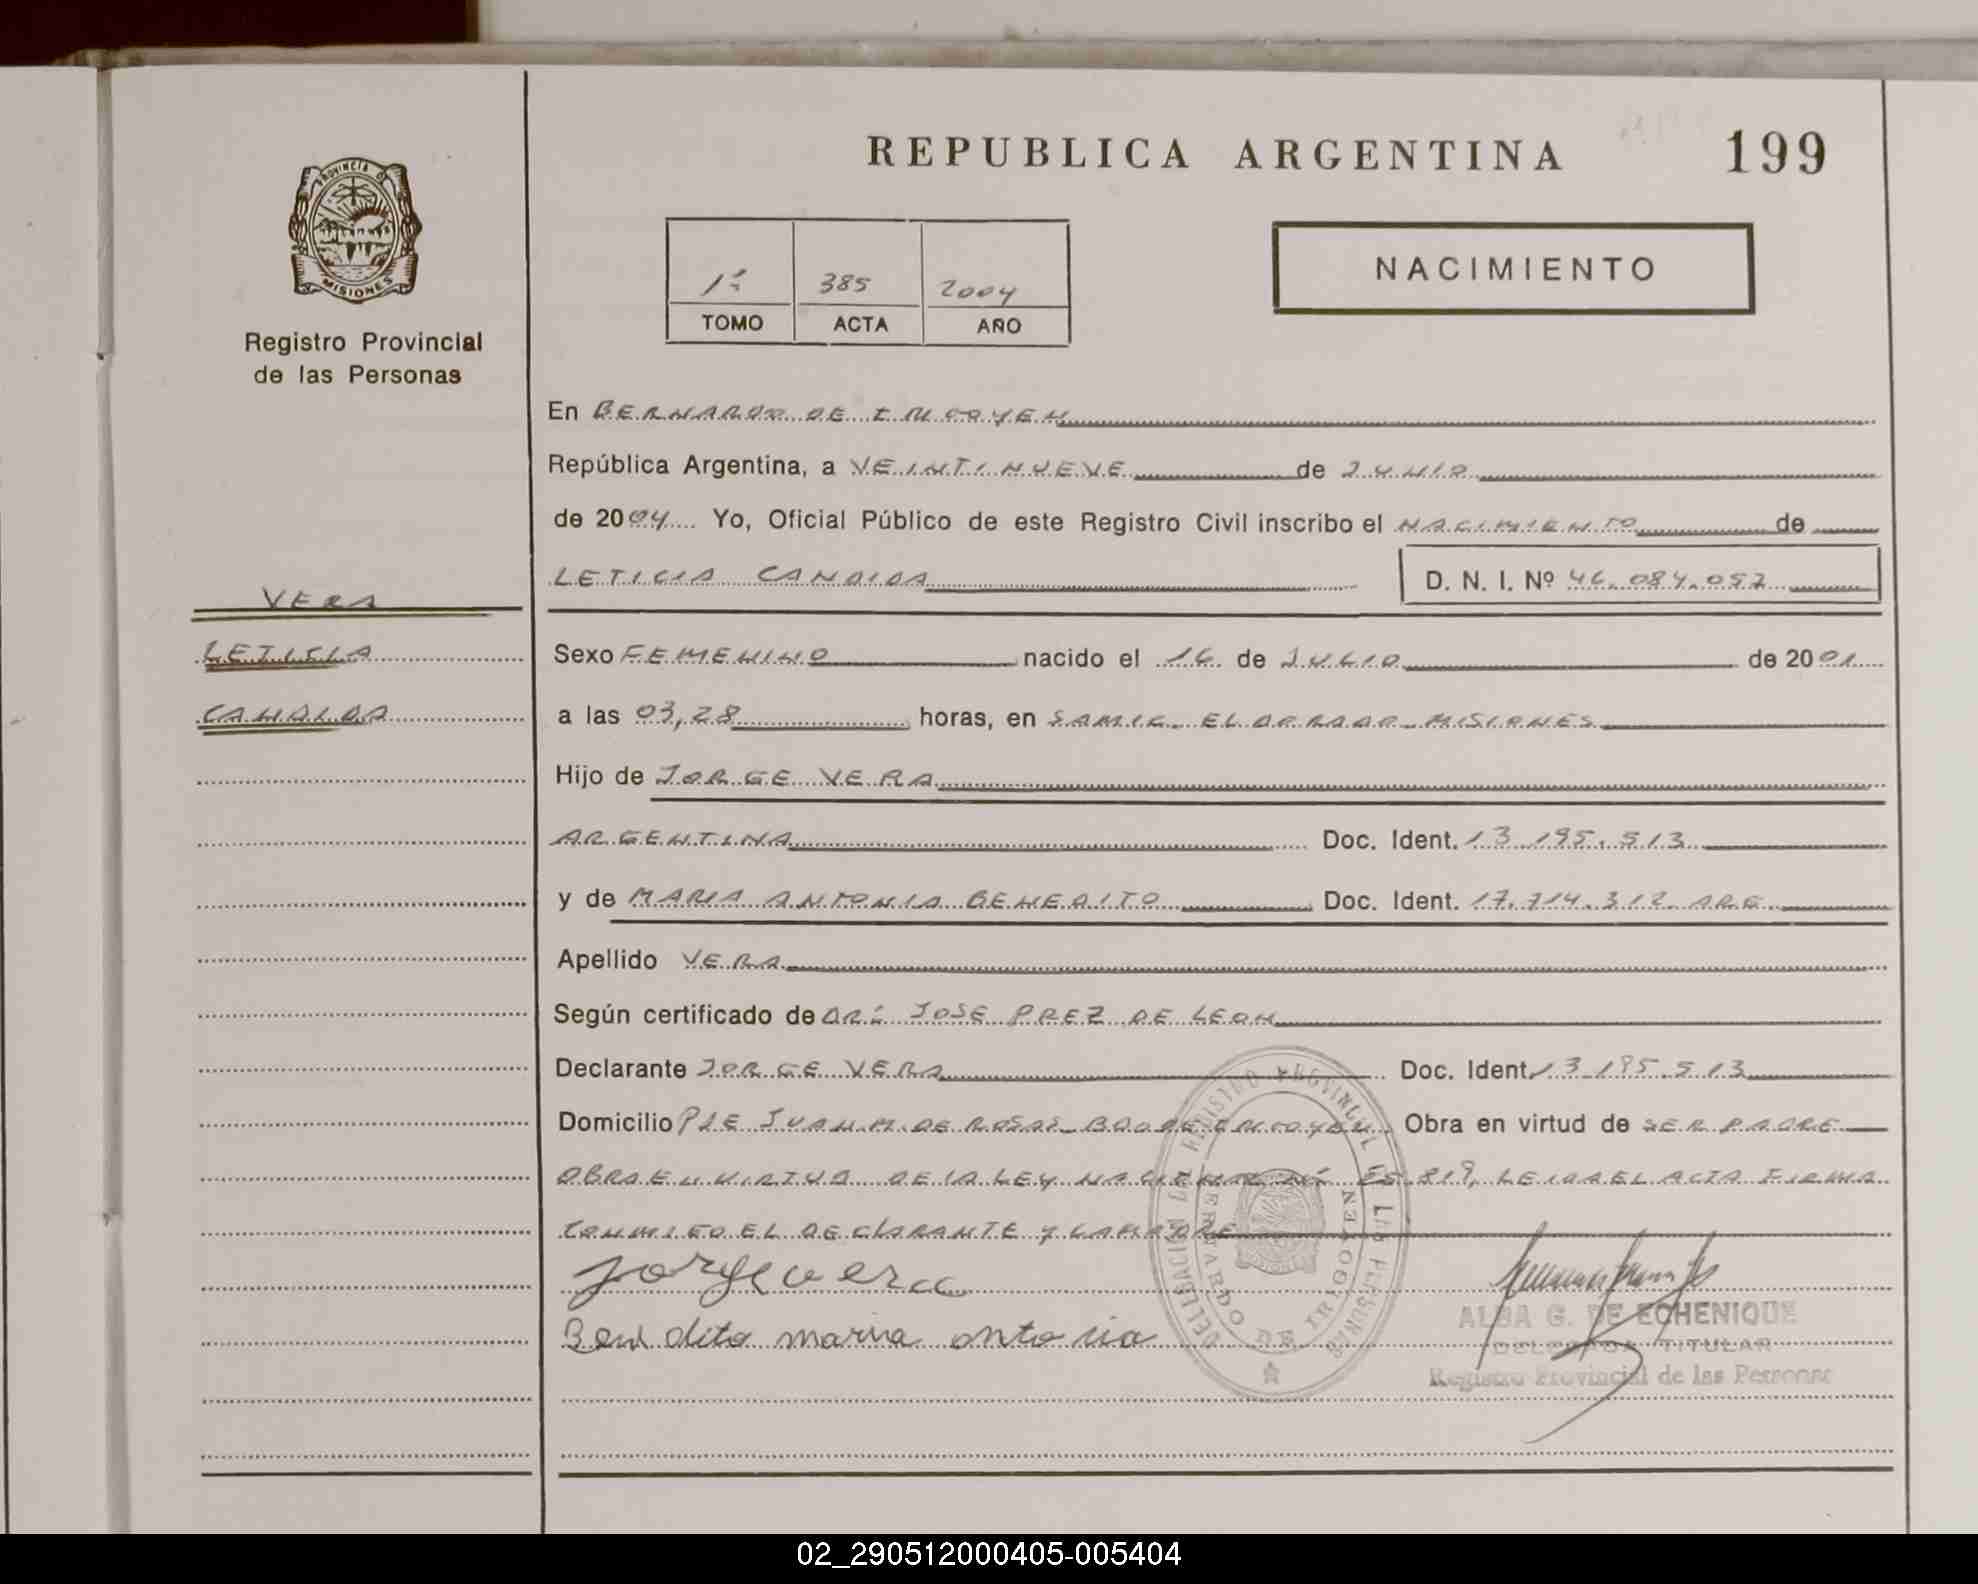 REPUBLICA ARGENTINA
199
PROVINCIA DE
MISIONES
Registro Provincial
de las Personas
1º 385 2004
TOMO ACTA AÑO
NACIMIENTO
En BERNARDO DE IRIGOYEN
República Argentina, a VEINTINUEVE de JUNIO
de 2004 Yo, Oficial Público de este Registro Civil inscribo el NACIMIENTO de
LETICIA CANDIDA D. N. I. Nº 46.084.057
VERA
LETICIA
CANDIDA
Sexo FEMENINO nacido el 16 de JULIO de 2001
a las 03,28 horas, en SAMIC ELDORADO MISIONES
Hijo de JORGE VERA
ARGENTINA Doc. Ident. 13.195.513
y de MARIA ANTONIA BENEDITO Doc. Ident. 17.714.312 ARG
Apellido VERA
Según certificado de DR: JOSE PREZ DE LEON
Declarante JORGE VERA Doc. Ident. 13.195.513
Domicilio PJE JUAN M. DE ROSAS BDO DE IRIGOYEN Obra en virtud de SER PADRE
OBRA EN VIRTUD DE LA LEY NACIONAL Nº 25.819, LEIDA EL ACTA FIRMA
CONMIGO EL DECLARANTE Y LA MADRE
Jorge vera
Benedito maria antonia
DELEGACION DEL REGISTRO PROVINCIAL DE LAS PERSONAS
BERNARDO DE IRIGOYEN
ALBA G. DE ECHENIQUE
DELEGADA TITULAR
Registro Provincial de las Personas
02_290512000405-005404